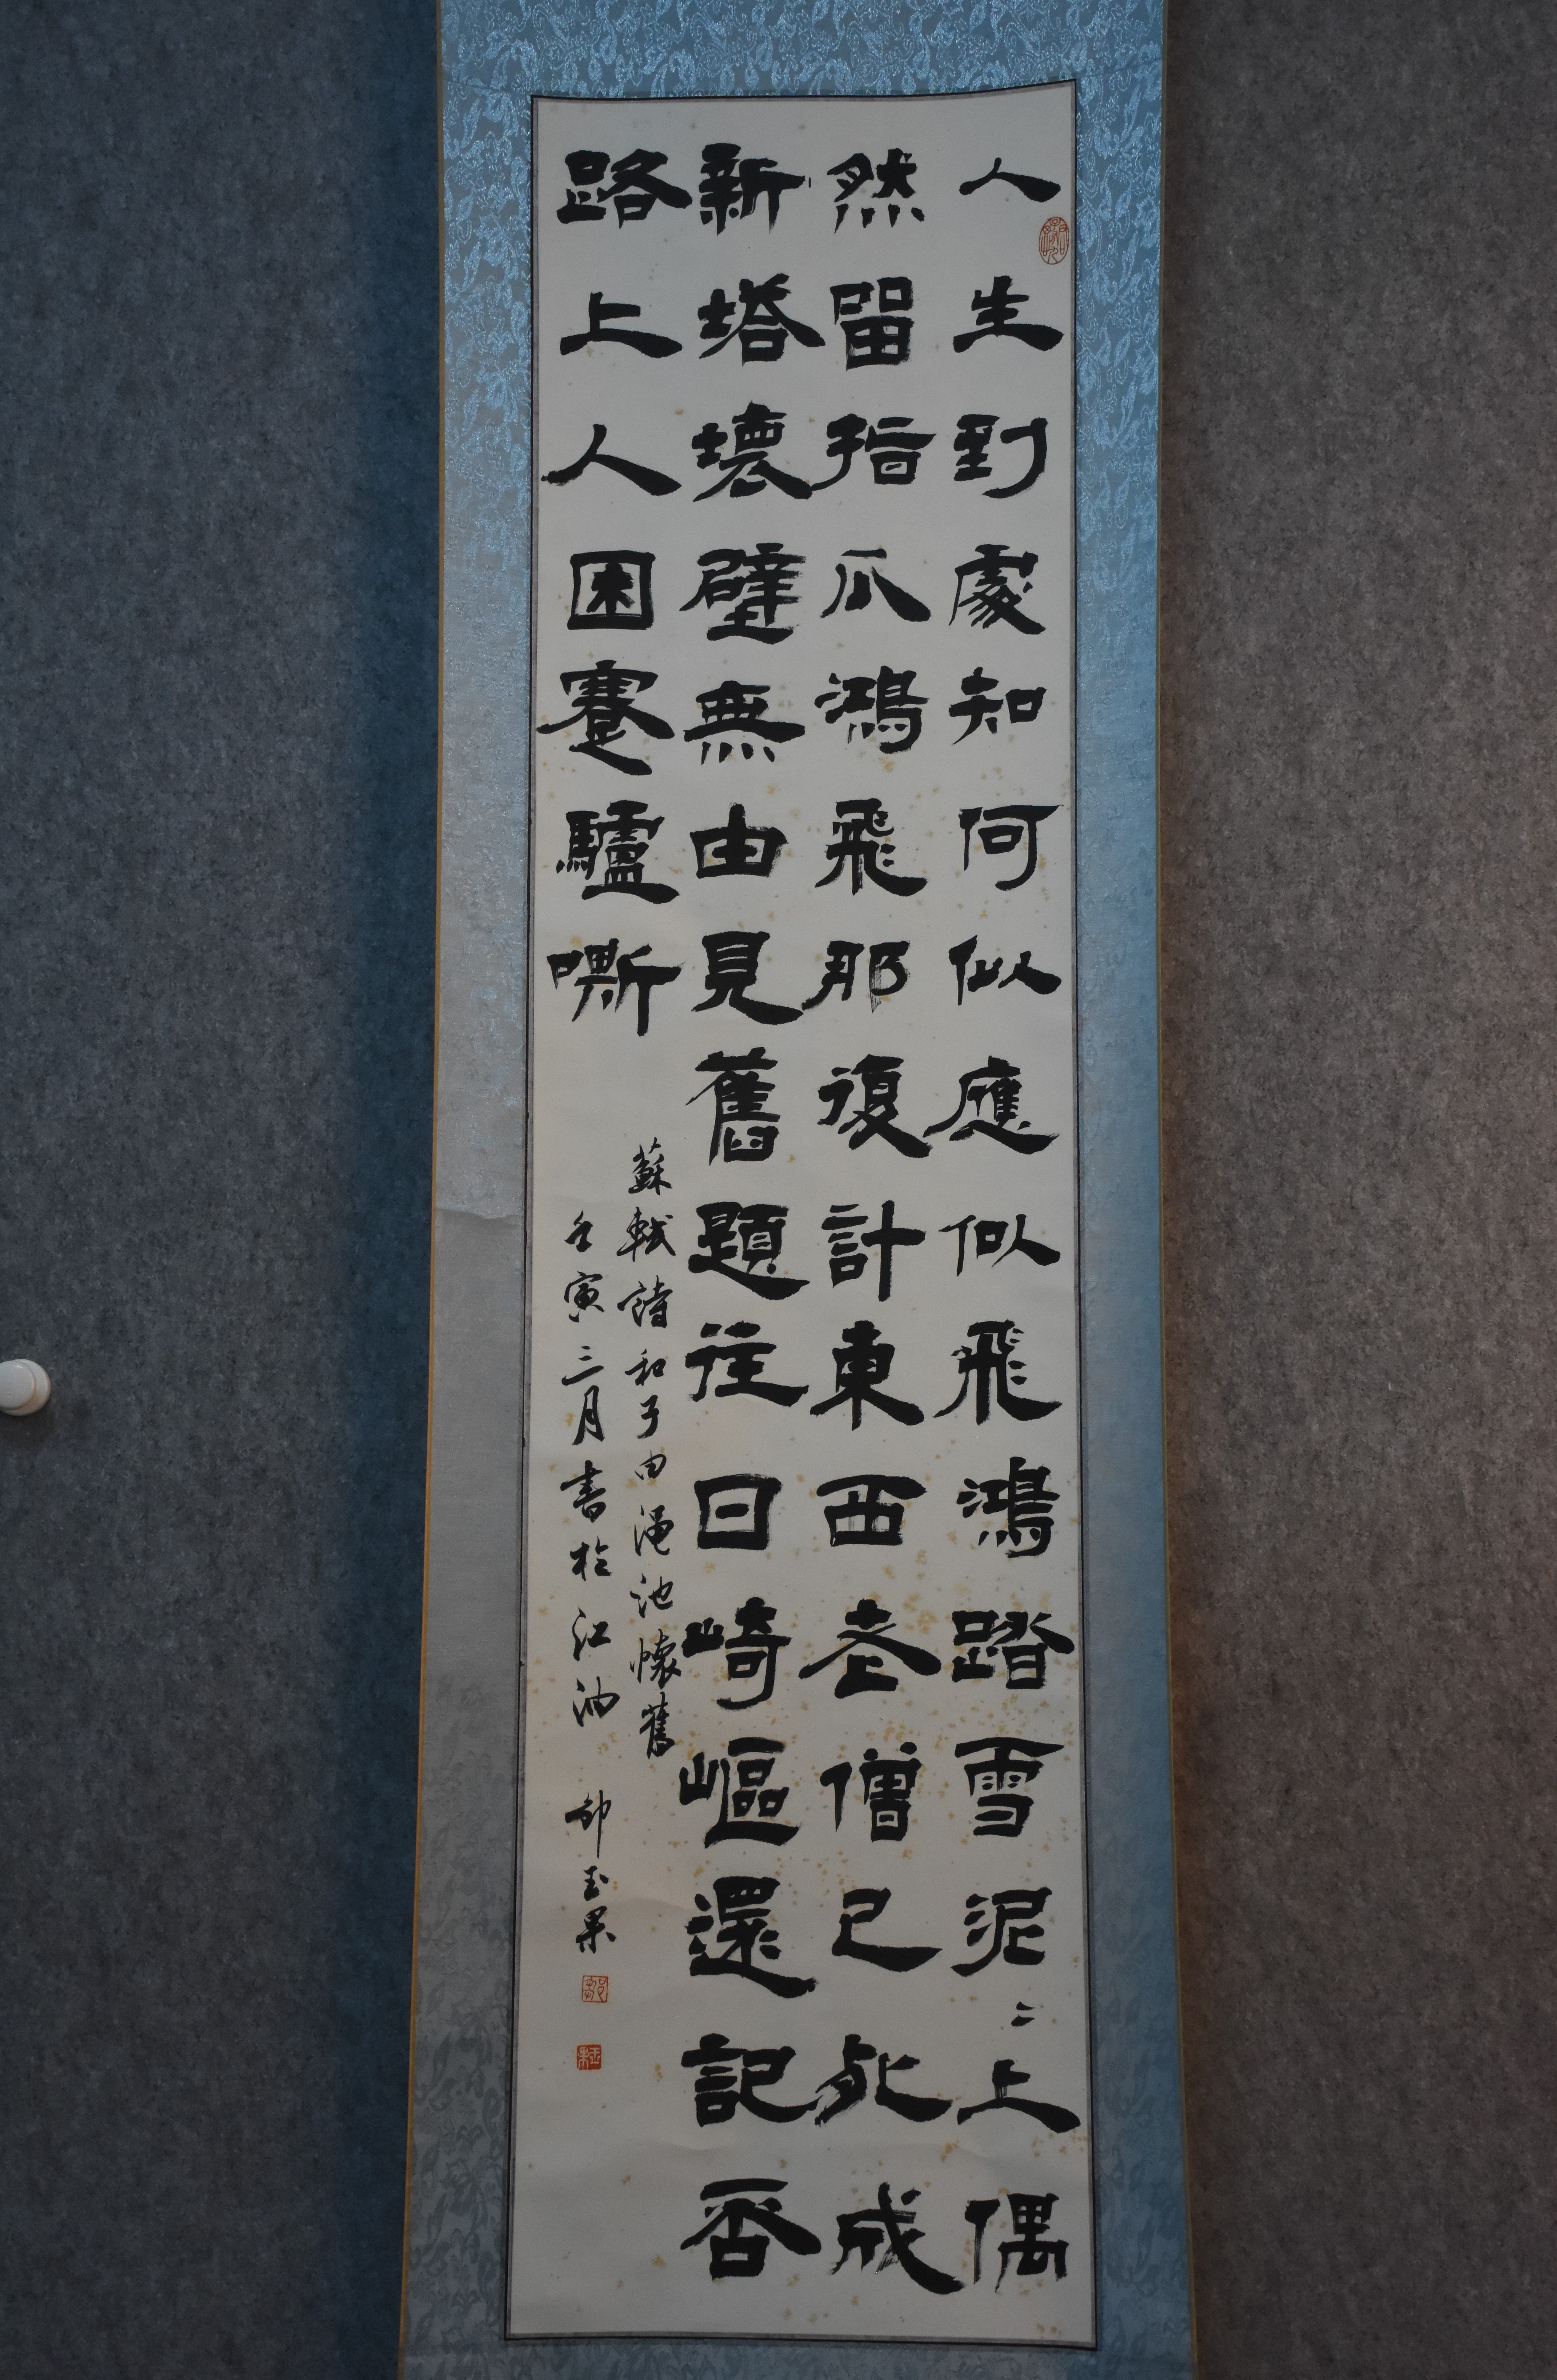 人生到處知何似應似飛鴻踏雪泥〻上偶
然留指爪鴻飛那復計東西老僧已死成
新塔壞壁無由見舊題往日崎嶇還記否
路上人困蹇驢嘶
蘇軾詩和子由澠池懷舊
壬寅三月書於江油 邹玉果